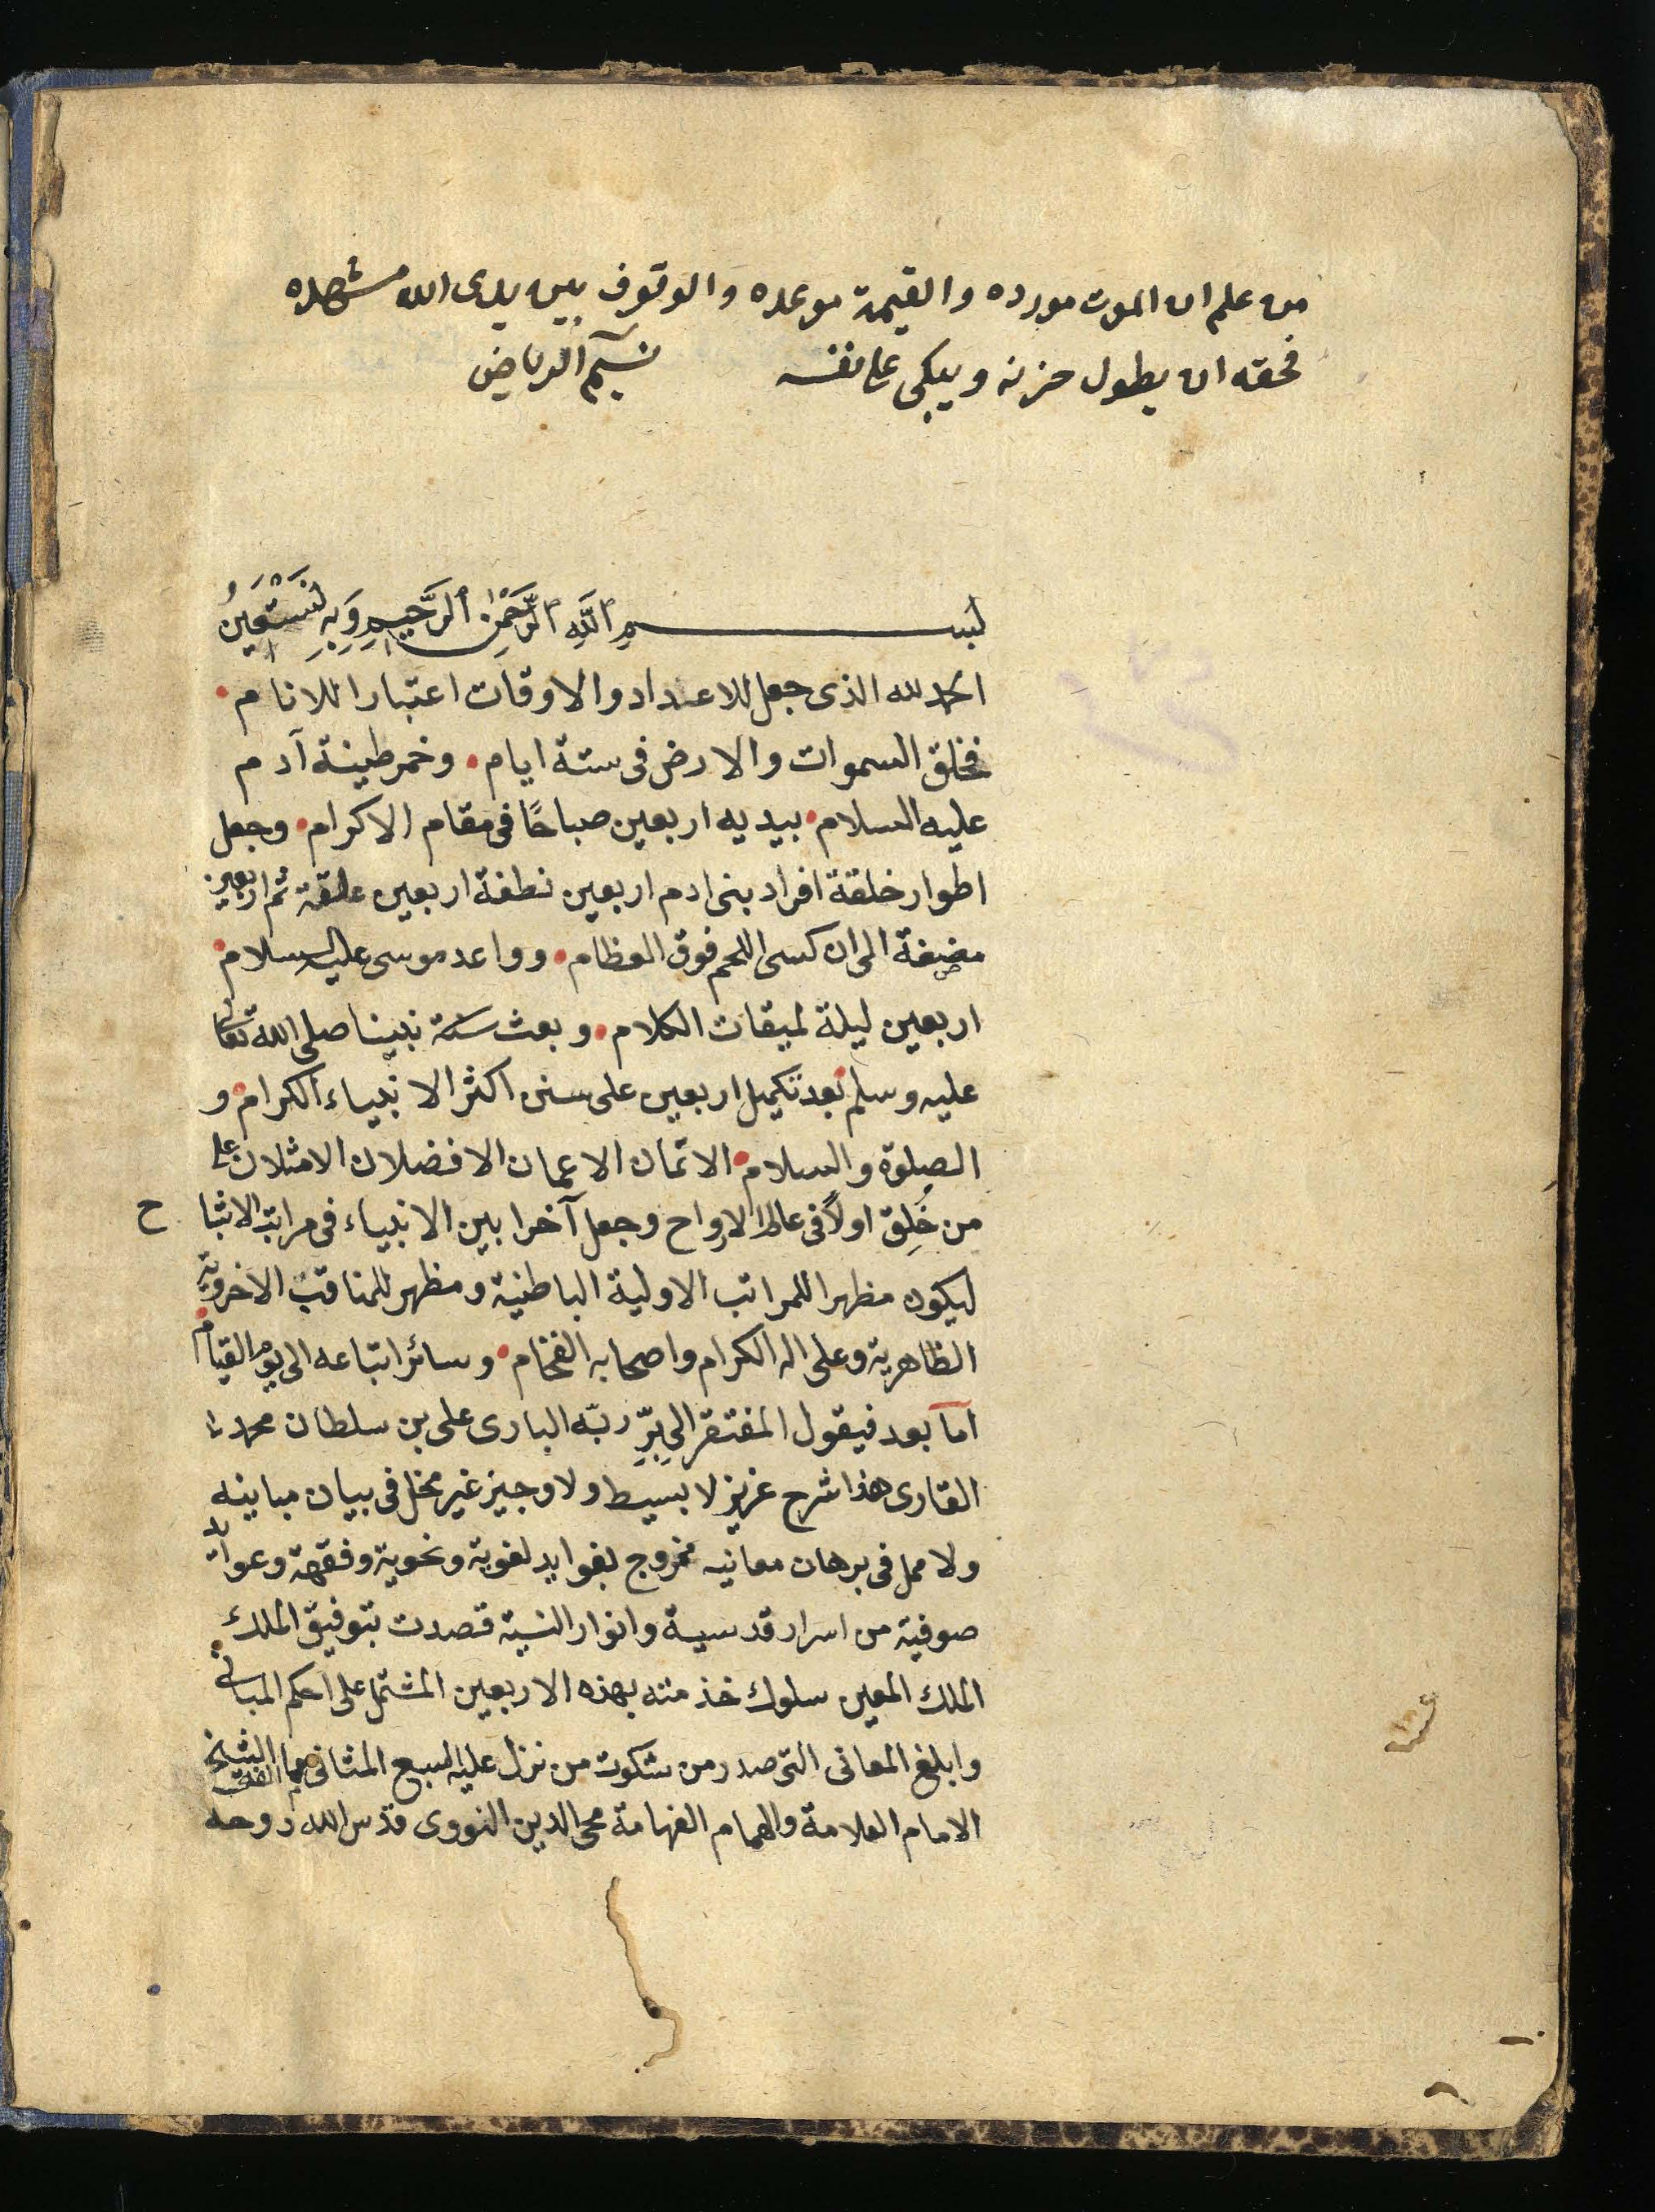 من علم ان الموت مورده والقيمة موعده والوقوف بين يدى الله مشهده
فحقه ان يطول حزنه ويبكى على نفسه نسيم الرياض
بسم الله الرحمن الرحيم وبه نستعين
الحمد لله الذى جعل للاعداد والاوقات اعتبارا للانام
فخلق السموات والارض فى ستة ايام وخمر طينة آدم
عليه السلام بيديه اربعين صباحًا فى مقام الاكرام وجعل
اطوار خلقة افراد بنى ادم اربعين نطفة اربعين علقة ثم اربعين
مضغة الى ان كسى اللحم فوق العظام وواعد موسى عليه السلام
اربعين ليلة لميقات الكلام وبعث نبينا صلى الله تعالى
عليه وسلم بعد تكميل اربعين على سنن اكثر الانبياء الكرام و
الصلوة والسلام الاتمان الاعمان الافضلان الامثلان على
من خُلِق اولاً فى عالم الارواح وجعل آخرا بين الانبياء فى مراتب الاشبا ح
ليكون مظهرا للمراتب الاولية الباطنية ومظهر للمناقب الاخروية
الظاهرية وعلى اله الكرام واصحابه الفخام وسائر اتباعه الى يوم القيام
اما بعد فيقول المفتقر الى برّ ربّه البارى على بن سلطان محمد
القارى هذا شرح عزيز لا بسيط ولا وجيز غير مخل فى بيان مباينه
ولا ممل فى برهان معانيه ممزوج بفوايد لغوية ونحوية وفقهة وعوايد
صوفية من اسرار قدسية وانوار انسية قصدت بتوفيق الملك
الملك المعين سلوك خذمته بهذه الاربعين المشتمل على احكم المبانى
وابلغ المعانى التى صدر من مشكوت من نزل عليه السبع المثانى جمعها الشيخ
الامام العلامة والهمام الفهامة محى الدين النووى قدّس الله روحه